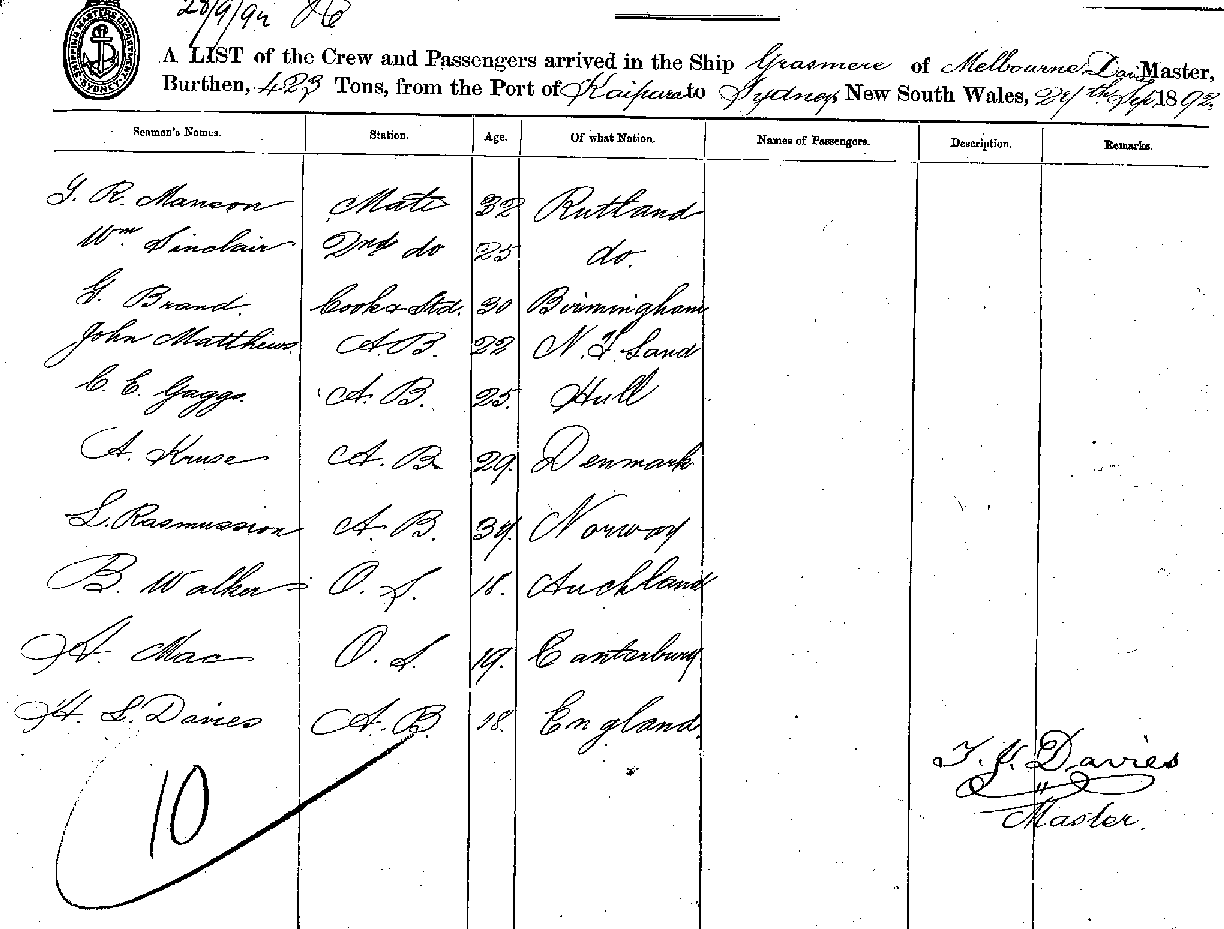 28/9/92
SHIPPING MASTERS DEPARTMENT SYDNEY
A LIST of the Crew and Passengers arrived in the Ship Grasmere of Melbourne Master,
Burthen, 423 Tons, from the Port of Kaipara to Sydney, New South Wales, Sep 1892.
Seamen's Names. Station. Age. Of what Nation. Names of Passengers. Description. Remarks.
G. R. Manson Mate 32 Rutland
Wm Sinclair 2nd do 25 do.
G. Brand. Cook & Std. 30 Birmingham
John Matthews A.B. 22 N. F. Land
C. E. Gaggs. A.B. 25. Hull
A. Kruse A.B. 29. Denmark
L. Rasmussion A.B. 34. Norway
B. Walker O.S. 18. Auckland
H. Mac O.S. 19. Canterbury
H. L. Davies A.B. 18. England.
10
Davies
Master.